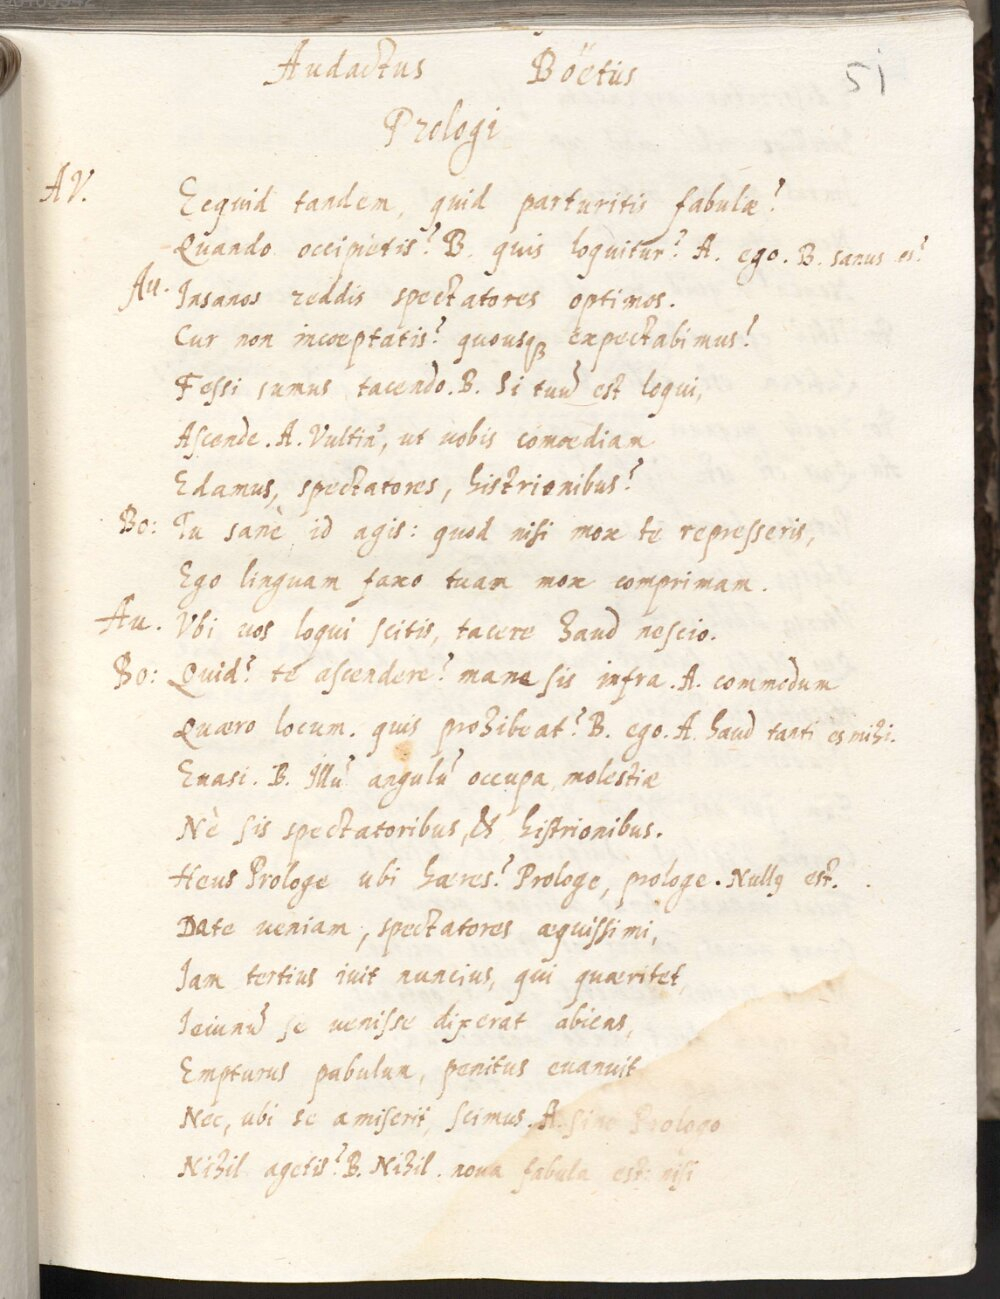 Audactus Boëtius 51
Prologi
AV. Ecquid tandem, quid parturitis fabulæ?
Quando occipietis? B. quis loquitur? A. ego. B. sanus es?
Au. Insanos reddis spectatores optimos.
Cur non incœptatis? quousqꝫ expectabimus?
Fessi sumus tacendo. B. Si tuũ est loqui,
Ascende. A. Vultin', ut uobis comœdiam
Edamus, spectatores, histrionibus?
Bo: Tu sanè id agis: quod nisi mox te represseris,
Ego linguam faxo tuam mox comprimam.
Au. Vbi uos loqui scitis, tacere haud nescio.
Bo: Quid? te ascendere? mane sis infra. A. commodum
Quæro locum. quis prohibeat? B. ego. A. haud tanti es mihi.
Euasi. B. Illũ angulũ occupa, molestiæ
Nè sis spectatoribus, & histrionibus.
Heus Prologe ubi hæres? Prologe, prologe. Nullꝰ est.
Date ueniam, spectatores æquissimi,
Iam tertius iuit nuncius, qui quæritet,
Ieiunũ se uenisse dixerat abiens,
Empturus pabulum, penitus euanuit
Nec, ubi se amiserit, scimus. A. sine Prologo
Nihil agetis? B. Nihil. noua fabula est: nisi